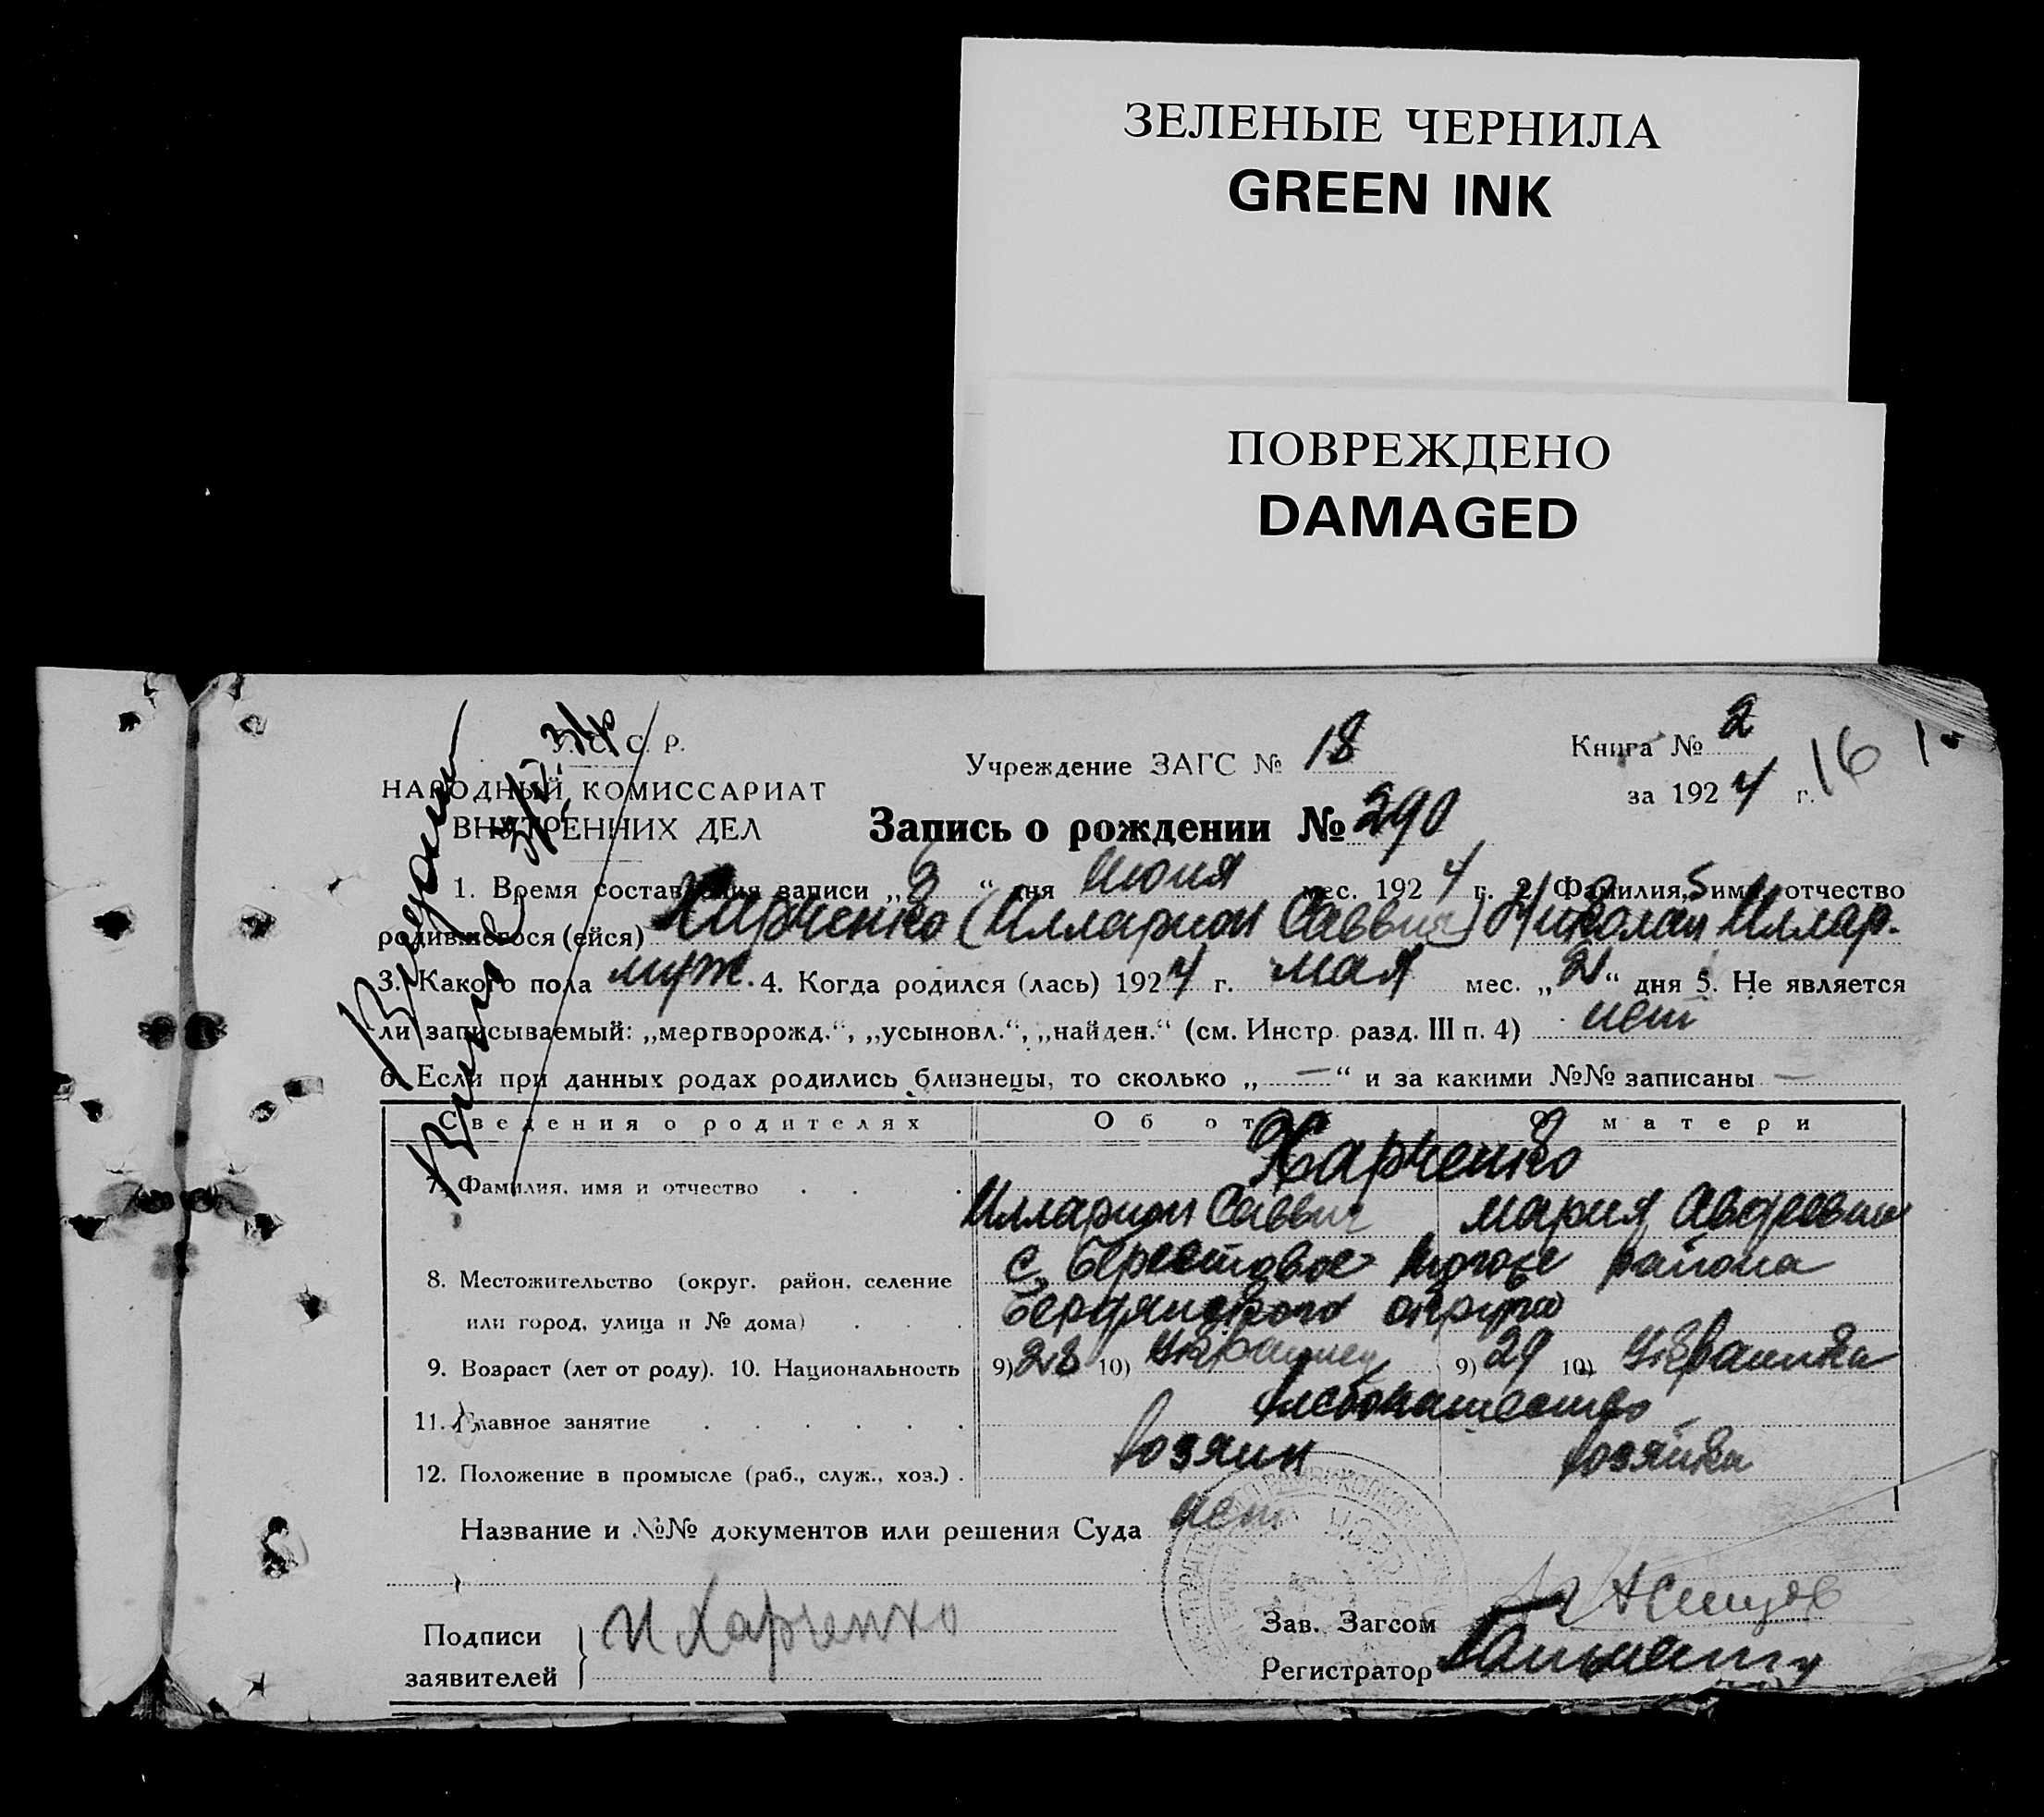 ЗЕЛЕНЫЕ ЧЕРНИЛА
GREEN INK
ПОВРЕЖДЕНО
DAMAGED
У. С. С. Р.
НАРОДНЫЙ КОМИССАРИАТ
ВНУТРЕННИХ ДЕЛ
Учреждение ЗАГС № 18
Книга № 2
за 1924 г.
16
Запись о рождении № 290
1. Время составления записи „3“ дня Июня мес. 1924 г. 2. Фамилия, имя, отчество
родившегося (ейся) Харченко (Илларион Саввич) Николай Иллар.
3. Какого пола муж. 4. Когда родился (лась) 1924 г. мая мес. „2“ дня 5. Не является
ли записываемый: „мертворожд.“, „усыновл.“, „найден.“ (см. Инстр. разд. III п. 4) нет
6. Если при данных родах родились близнецы, то сколько „—“ и за какими №№ записаны —
Сведения о родителях Об от О матери
Харченко
7. Фамилия, имя и отчество
Илларион Саввич Мария Авдеевна
8. Местожительство (округ, район, селение с. Берестовое района
или город, улица и № дома) Бердянского округа
9. Возраст (лет от роду). 10. Национальность 9) 28 10) Украинец 9) 29 10) Украинка
11. Главное занятие хлебопашество
12. Положение в промысле (раб., служ., хоз.) хозяин хозяйка
Название и №№ документов или решения Суда нет
Подписи
заявителей
И Харченко
Зав. Загсом
Регистратор